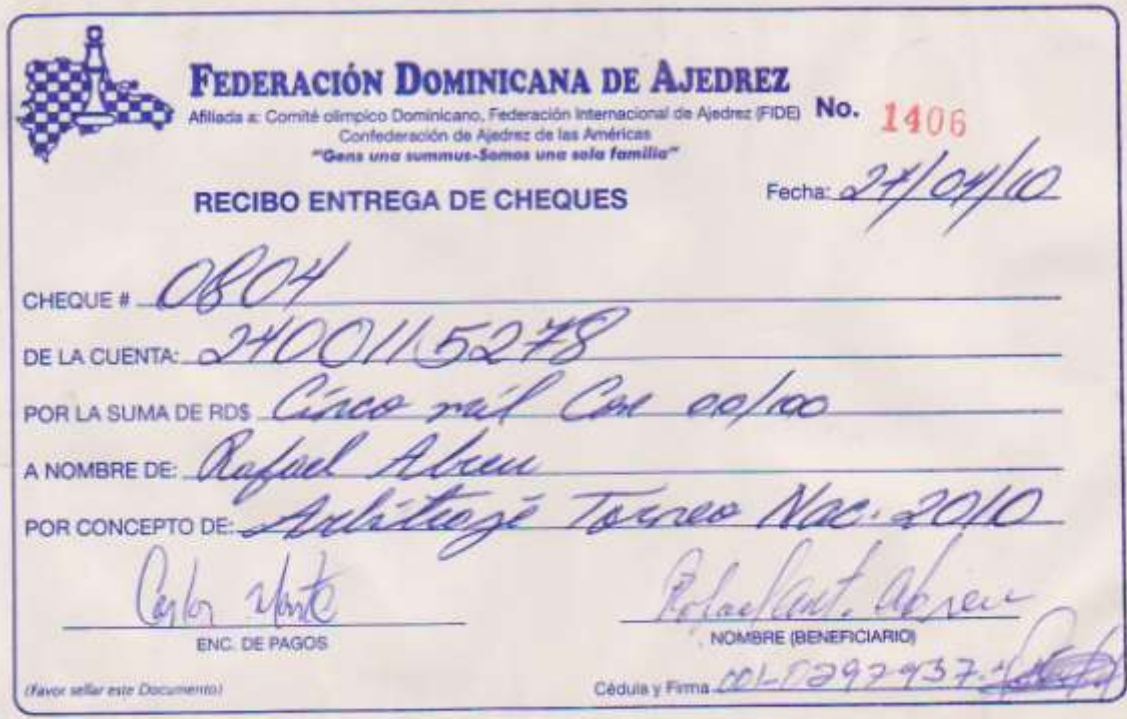 FEDERACIÓN DOMINICANA DE AJEDREZ
Afiliada a: Comité olímpico Dominicano, Federación Internacional de Ajedrez (FIDE)
No. 1406
Confederación de Ajedrez de las Américas
"Gens una summus-Somos una sola familia"
RECIBO ENTREGA DE CHEQUES
Fecha: 27/04/10
CHEQUE # 0804
DE LA CUENTA: 2400115278
POR LA SUMA DE RD$ Cinco mil Con 00/100
A NOMBRE DE: Rafael Abreu
POR CONCEPTO DE: Arbitraje Torneo Nac. 2010
Carlos
Rafael Ant. Abreu
ENC. DE PAGOS
NOMBRE (BENEFICIARIO)
(Favor sellar este Documento)
Cédula y Firma